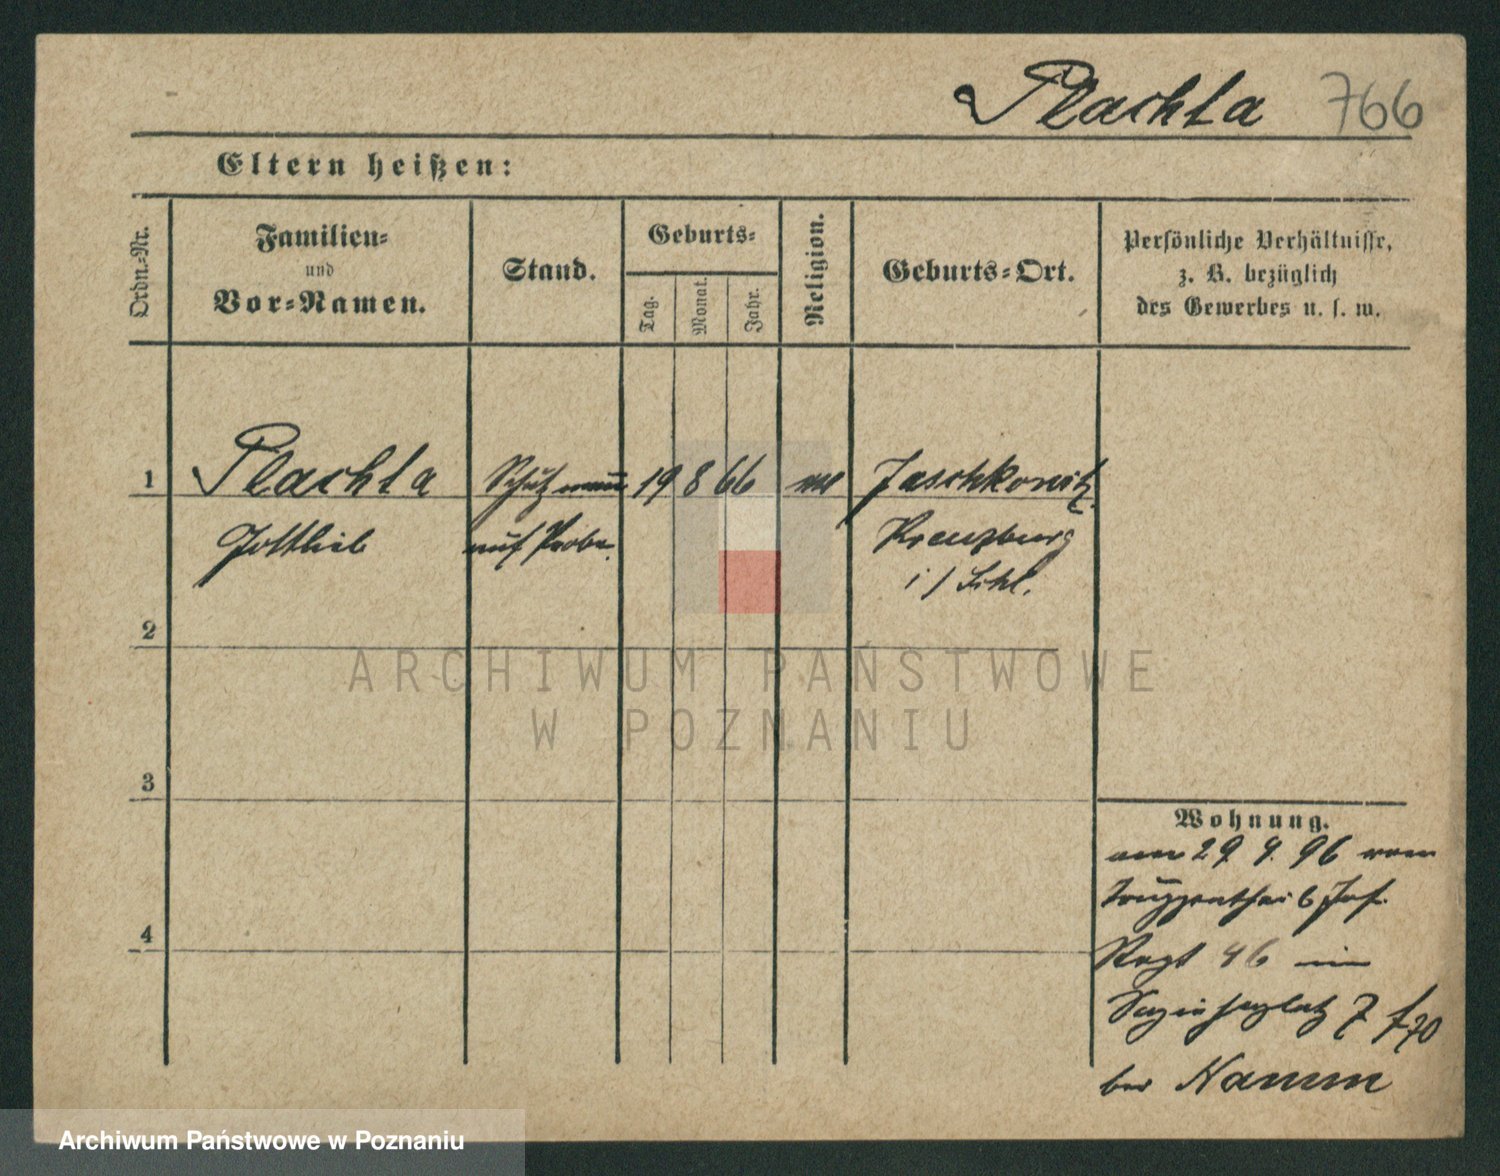 Plachta 766
Eltern heißen:
Ordn.-Nr.
Familien-
und
Vor-Namen.
Stand.
Geburts-
Tag.
Monat.
Jahr.
Religion.
Geburts-Ort.
Persönliche Verhältnisse,
z. B. bezüglich
des Gewerbes u. s. w.
1 Plachta Schutzmann 19 8 66 Jaschkowitz
Gottlieb auf Probe. Kreuzburg
i/Schl.
2
3
4
Wohnung.
am 29. 9. 96 vom
Inf.
Regt 46 in
Sapiehaplatz 7
bei Namm
ARCHIWUM PAŃSTWOWE
W POZNANIU
Archiwum Państwowe w Poznaniu